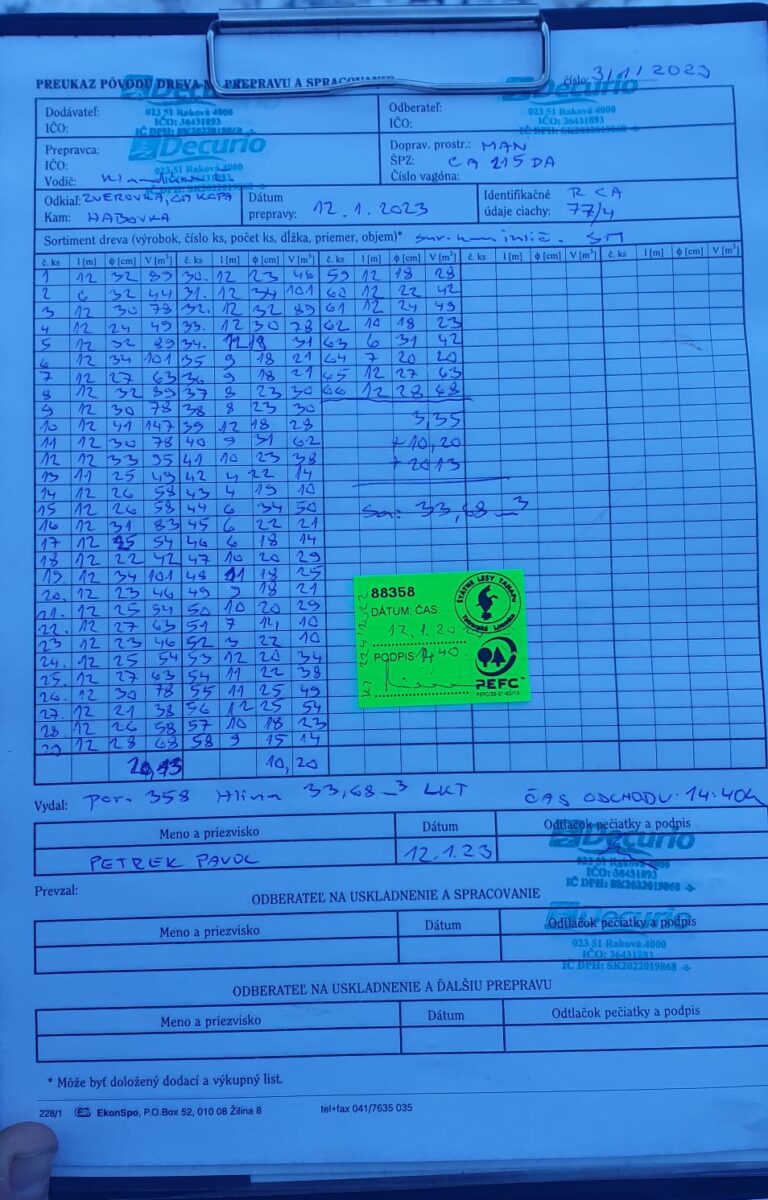 PREUKAZ PÔVODU DREVA N PREPRAVU A SPRACOVANIE
číslo: 3/1/2023
Decurio
023 51 Raková 4000
IČO: 36431893
IČ DPH: SK2022019868 -5-
Decurio
023 51 Raková 4000
IČO: 36431893
IČ DPH: SK2022019868 -5-
Dodávateľ:
IČO:
Odberateľ:
IČO:
Prepravca:
IČO:
Vodič:
Decurio
023 51 Raková 4000
IČO: 36431893
Doprav. prostr.: MAN
ŠPZ: CA 215 DA
Číslo vagóna:
Odkiaľ: ZVEROVKA,
Kam: HABOVKA
Dátum prepravy: 12.1.2023
Identifikačné údaje ciachy: R CA 77/4
Sortiment dreva (výrobok, číslo ks, počet ks, dĺžka, priemer, objem)* SM
č. ks l [m] ϕ [cm] V [m³] č. ks l [m] ϕ [cm] V [m³] č. ks l [m] ϕ [cm] V [m³] č. ks l [m] ϕ [cm] V [m³] č. ks l [m] ϕ [cm] V [m³]
1 12 32 89 30. 12 23 46 59 12 18 28
2 6 32 44 31. 12 34 101 60 12 22 42
3 12 30 78 32. 12 32 89 61 12 24 49
4 12 24 49 33. 12 30 78 62 10 18 23
5 12 32 89 34. 12 19 31 63 6 31 42
6 12 34 101 35 9 18 21 64 7 20 20
7 12 27 63 36 9 18 21 65 12 27 63
8 12 32 89 37 8 23 30 66 12 28 68
9 12 30 78 38 8 23 30
10 12 41 147 39 12 18 28 3,35
11 12 30 78 40 9 31 62 + 10,20
12 12 33 95 41 10 23 38 + 20 13
13 11 25 49 42 4 22 14
14 12 26 58 43 4 19 10
15 12 26 58 44 6 34 50 Sa: 33,68 m3
16 12 31 83 45 6 22 21
17 12 25 54 46 6 18 14
18 12 22 42 47 10 20 29
19 12 34 101 48 11 18 25
20. 12 23 46 49 9 18 21
21. 12 25 54 50 10 20 29
22. 12 27 63 51 7 14 10
23 12 23 46 52 3 22 10
24. 12 25 54 53 12 20 34
25. 12 27 63 54 11 22 38
26. 12 30 78 55 11 25 49
27. 12 21 38 56 12 25 54
28. 12 26 58 57 10 18 23
29 12 28 68 58 9 15 14
20,13 10,20
88358
DÁTUM, ČAS
12.1.20
14,40
PODPIS
ŠTÁTNE LESY TANAPU
Tatranská Lomnica
PEFC™
Vydal: por. 358 Hlina 33,68 m3 LKT ČAS ODCHODU: 14:40h
Meno a priezvisko Dátum Odtlačok pečiatky a podpis
PETREK PAVOL 12.1.23
Decurio
023 51 Raková 4000
IČO: 36431893
IČ DPH: SK2022019868 -5-
Prevzal:
ODBERATEĽ NA USKLADNENIE A SPRACOVANIE
Meno a priezvisko Dátum Odtlačok pečiatky a podpis
Decurio
023 51 Raková 4000
IČO: 36431893
IČ DPH: SK2022019868 -5-
ODBERATEĽ NA USKLADNENIE A ĎALŠIU PREPRAVU
Meno a priezvisko Dátum Odtlačok pečiatky a podpis
* Môže byť doložený dodací a výkupný list.
228/1 EkonSpo, P.O.Box 52, 010 08 Žilina 8 tel+fax 041/7635 035